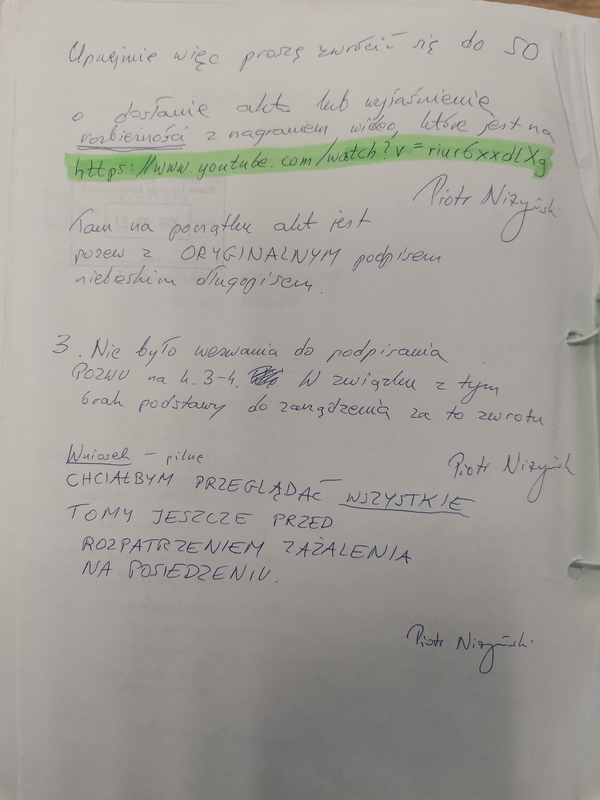 Uprzejmie więc proszę zwrócić się do SO
o dosłanie akt lub wyjaśnienie
rozbieżności z nagraniem wideo, które jest na
https://www.youtube.com/watch?v=riur6xxdLXg
Piotr Niżyński
Tam na początku akt jest
pozew z ORYGINALNYM podpisem
niebieskim długopisem.
3. Nie było wezwania do podpisania
POZWU na k. 3-4. W związku z tym
brak podstawy do zarządzenia za to zwrotu.
Wniosek – pilne
Piotr Niżyński
CHCIAŁBYM PRZEGLĄDAĆ WSZYSTKIE
TOMY JESZCZE PRZED
ROZPATRZENIEM ZAŻALENIA
NA POSIEDZENIU.
Piotr Niżyński